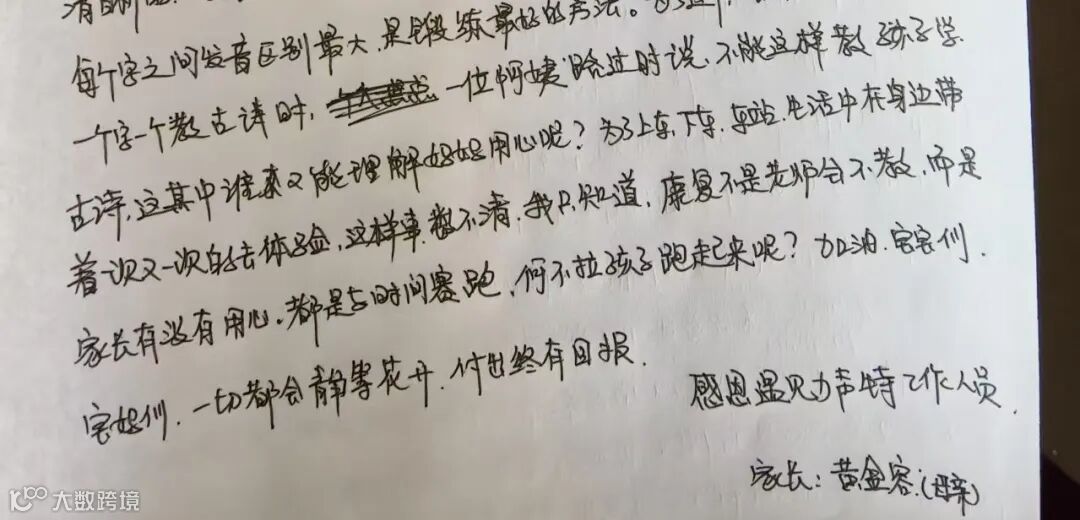 每个字之间发音区别最大,是锻炼最好的方法。
一个字一个教古诗时,一位阿姨路过时说,不能这样教孩子学
古诗,这其中谁素又能理解妈妈用心呢?为了上车、下车、车站、生活中在身边带
着一次又一次的去体验,这样事数不清,我只知道,康复不是老师会不教,而是
家长有没有用心。都是与时间赛跑,何不拉孩子跑起来呢?加油,宝宝们,
宝妈们,一切都会静等花开,付出终有回报.
感恩遇见力声特工作人员.
家长:黄金容(母亲)
大数跨境